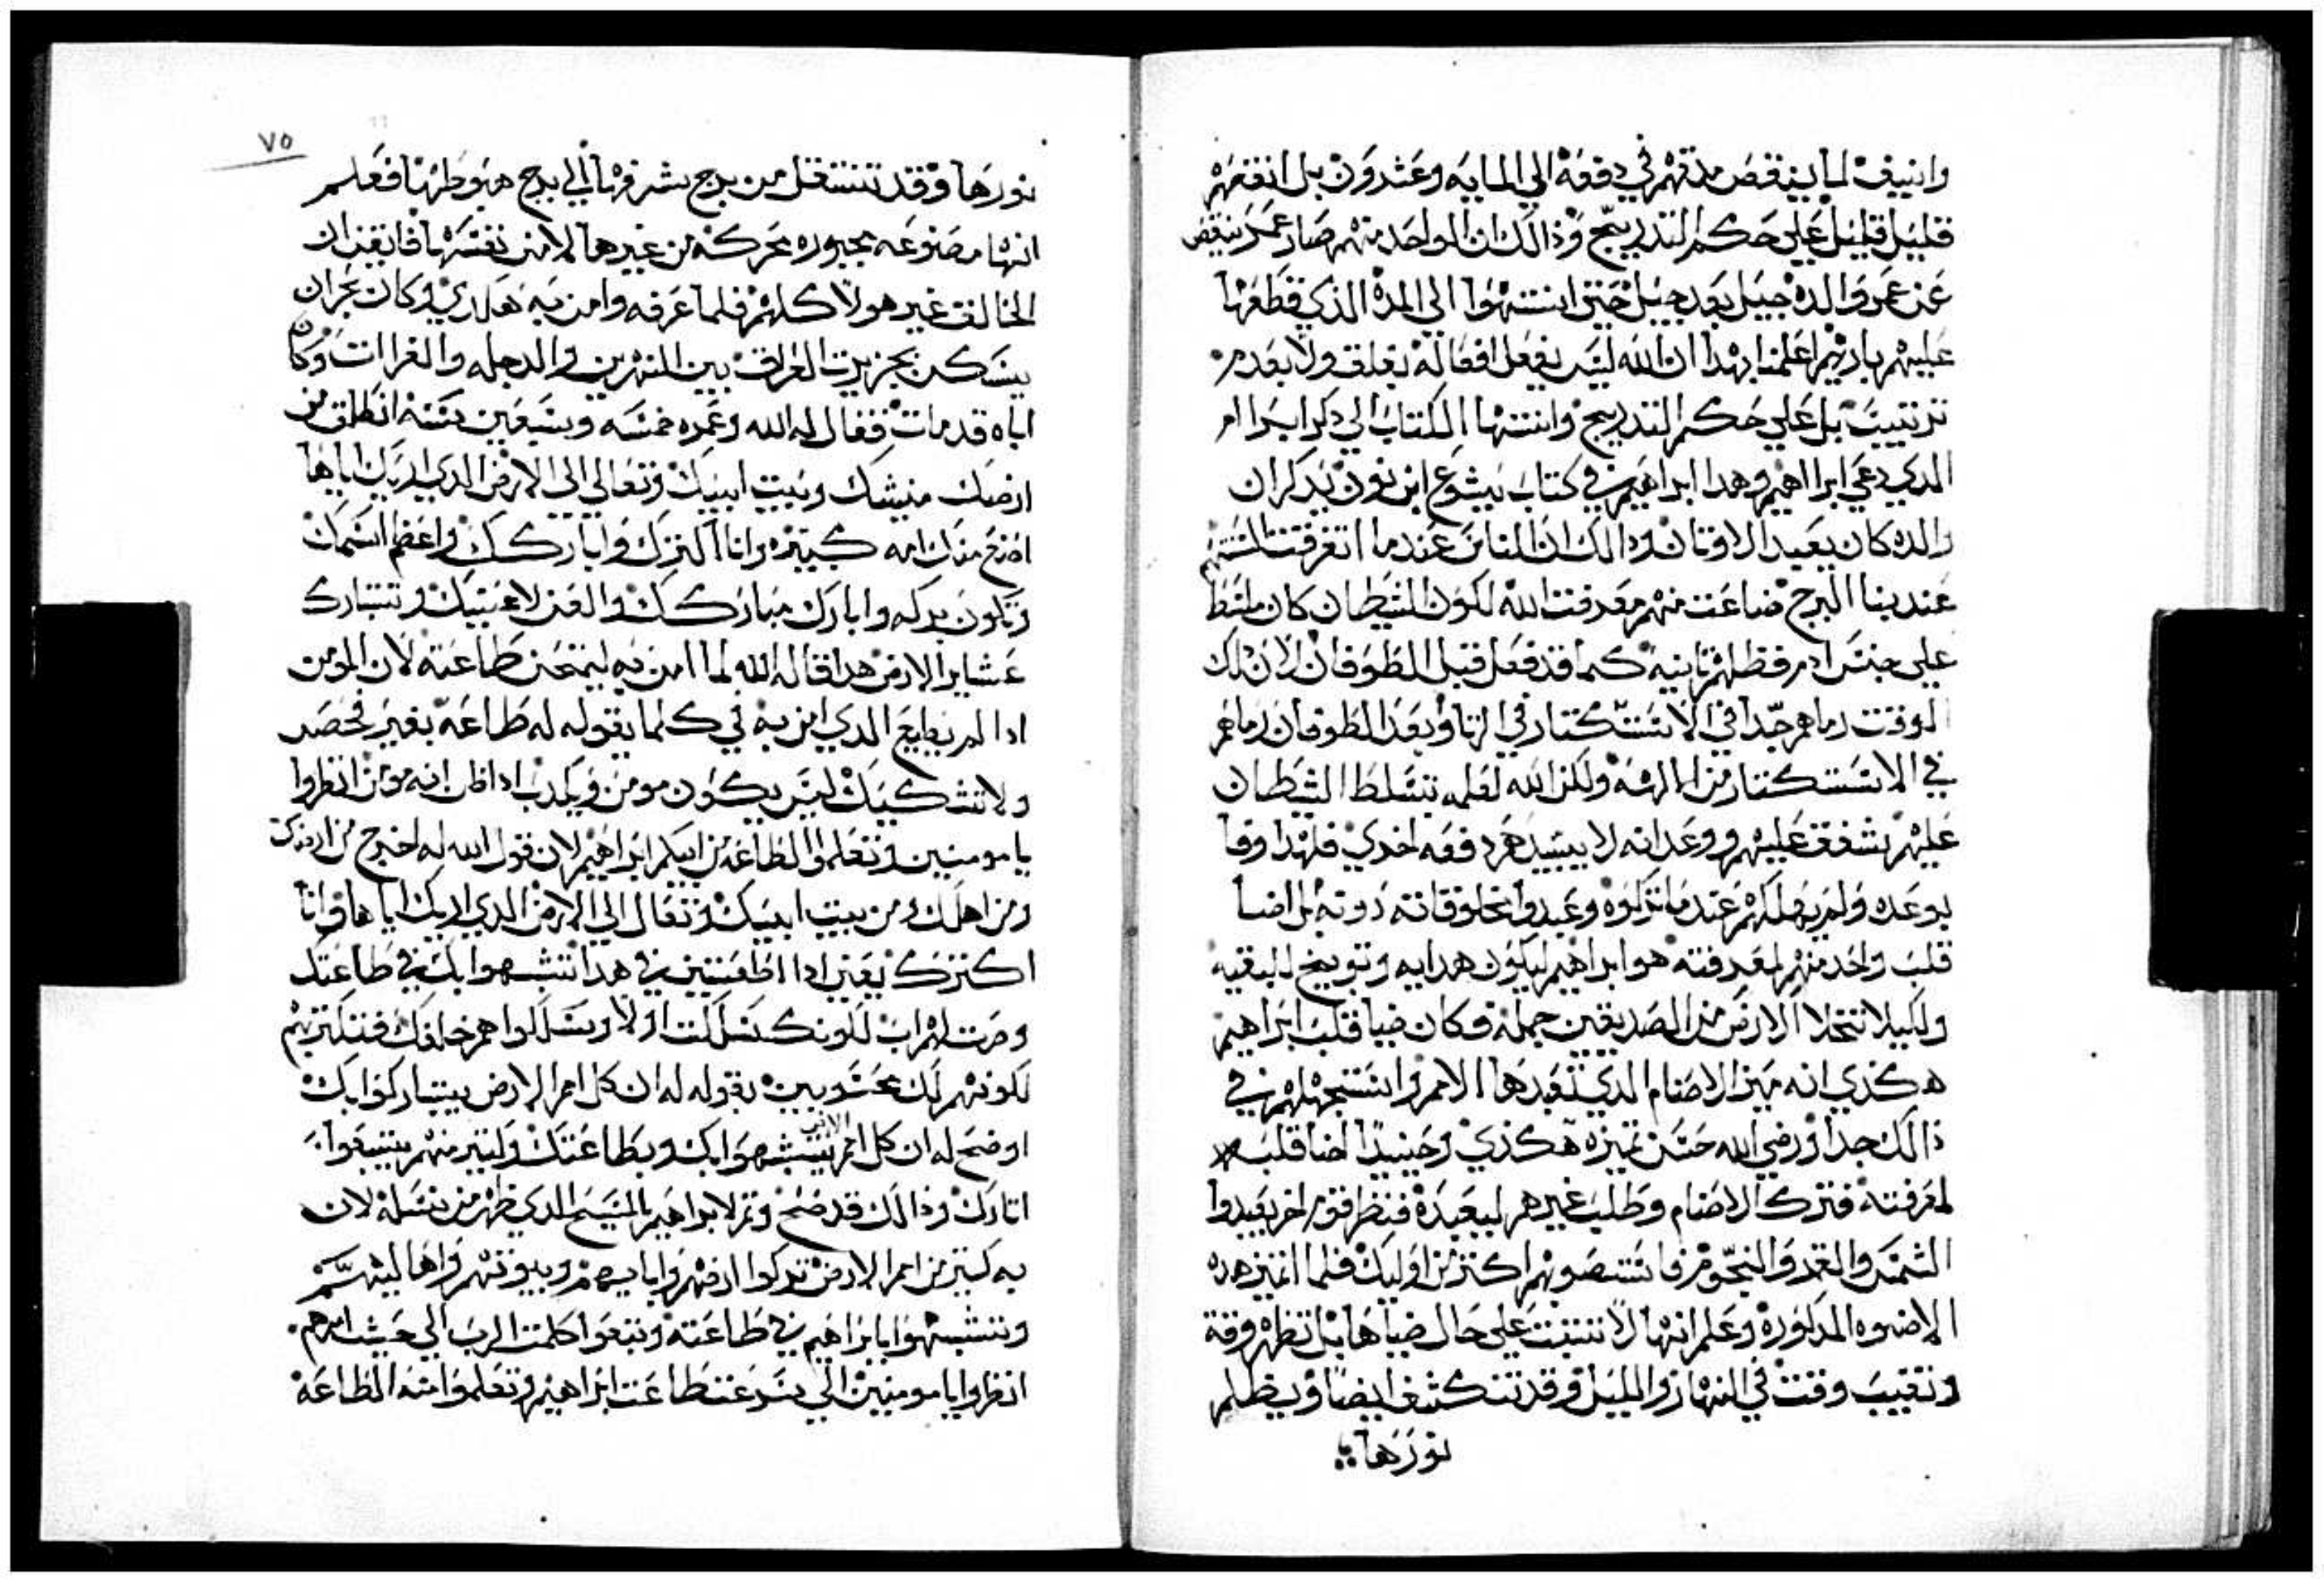 وانييف لما ينقص مدتهم في دفعة الي الماية وعشرون بل انقصهم
قليل قليل علي حكم التدريج وذالك ان الواحد منهم صار عمره ينقص
عن عمر والده جيل بعد جيل حتي انتهوا الي المدة الذي قطعها
عليهم باريهم اعلمنا بهدا ان الله ليس يفعل افعاله بغلق ولا بعدم
ترتيب بل علي حكم التدريج وانتها الكتاب الي دكر ابرام
الدي دعي ابراهيم وهدا ابراهيم في كتاب يشوع ابن نون يدكر ان
والده كان يعبد الاوتان ودالك ان الناس عندما اتفرقت السنتهم
عند بنا البرج ضاعت منهم معرفت الله لكون الشيطان كان ملتظ
علي جنس ادم فظلهم تانيه كما قد فعل قبل الطوفان لان دلك
الوقت رماهم جدا في الاستكتار في الزنا وبعد الطوفان رماهم
في الاستكتار من الالهه ولكن الله لعلمه تسلط الشيطان
عليهم شفق عليهم ووعد انه لا يبيدهم دفعه اخري فلهدا وفا
بوعده ولم يهلكهم عندما تركوه وعبدوا مخلوقاته دونه بل اضا
قلب واحد منهم لمعرفته هو ابراهيم ليكون هدايه وتوبيخ للبقيه
ولكيلا تتخلا الارض من الصديقين جمله فكان ضيا قلب ابراهيم
هكذي انه ميز الاصنام الدي تعبدها الامم واستجهلهم في
ذالك جدا ورضي الله حسن تميزه هكذي وحينيدا اضا قلبه
لمعرفته فترك الاصنام وطلب غيرهم ليعبده فنظر قوم اخر يعبدوا
الشمس والقمر والنجوم فاستصوبهم اكتر من اوليك فلما اتميز هده
الاضوه المدكوره وعلم انها لا تتبت علي حال ضياها بل تظهر وقة
وتغيب وقت في النهار والليل وقد تنكشف ايضا ويظلم
نورها
٧٥
نورها وقد تنتقل من برج شرفها الي برج هبوطها فعلم
انها مصنوعه مجبوره محركة من غيرها لا من نفسها فايقن ان
الخالق غير هولا كلهم فلما عرفه وامن به هكدي وكان بحران
يسكن بجزيرت العراق بين النهرين والدجله والفرات وكان
اباه قد مات فقال له الله وعمره خمسه وسبعين سنة انطلق من
ارضك منيشك وبيت ابيك وتعالي الي الارض الدي اريك اياها
اصنع منك امه كبيره وانا اكترك واباركك واعظم اسمك
وتكون بركه وابارك مباركك والعن لاعنيك وتتبارك
عشاير الارض هدا قاله الله لما امن به ليمتحن طاعته لان المومن
ادا لم يطايع الدي امن به في كلما يقوله له طاعة بغير فحص
ولا تشكيك ليس يكون مومن ويكدب ادا ظن انه مومن انظروا
يا مومنين وتعلموا الطاعه من ابيكم ابراهيم لان قول الله له اخرج من ارضك
ومن اهلك ومن بيت ابيك وتعال الي الارض الدي اريك اياها وانا
اكترك يعني ادا اطعتني في هدا تتشبهوا بك في طاعتك
وصرت لهم اب لكونك سلكت اولا وسلكوا هم خلفك فتكتر بهم
لكونهم لك محسوبين بقوله له ان كل امم الارض يتباركوا بك
اوضح له ان كل امم الارض يتشبهوا بك وبطاعتك وكتير منهم يتبعوا
اتارك وذالك قد صح وتم لابراهيم بالمسيح الدي ظهر من نسله لان
به كتير من امم الارض تركوا ارضهم واباييهم وبيوتهم واهاليهم
وتشبهوا بابراهيم في طاعته وتبعوا كلمت الرب الي حيث امرهم
انظروا يا مومنين الي سرعت طاعت ابراهيم وتعلموا منه الطاعة